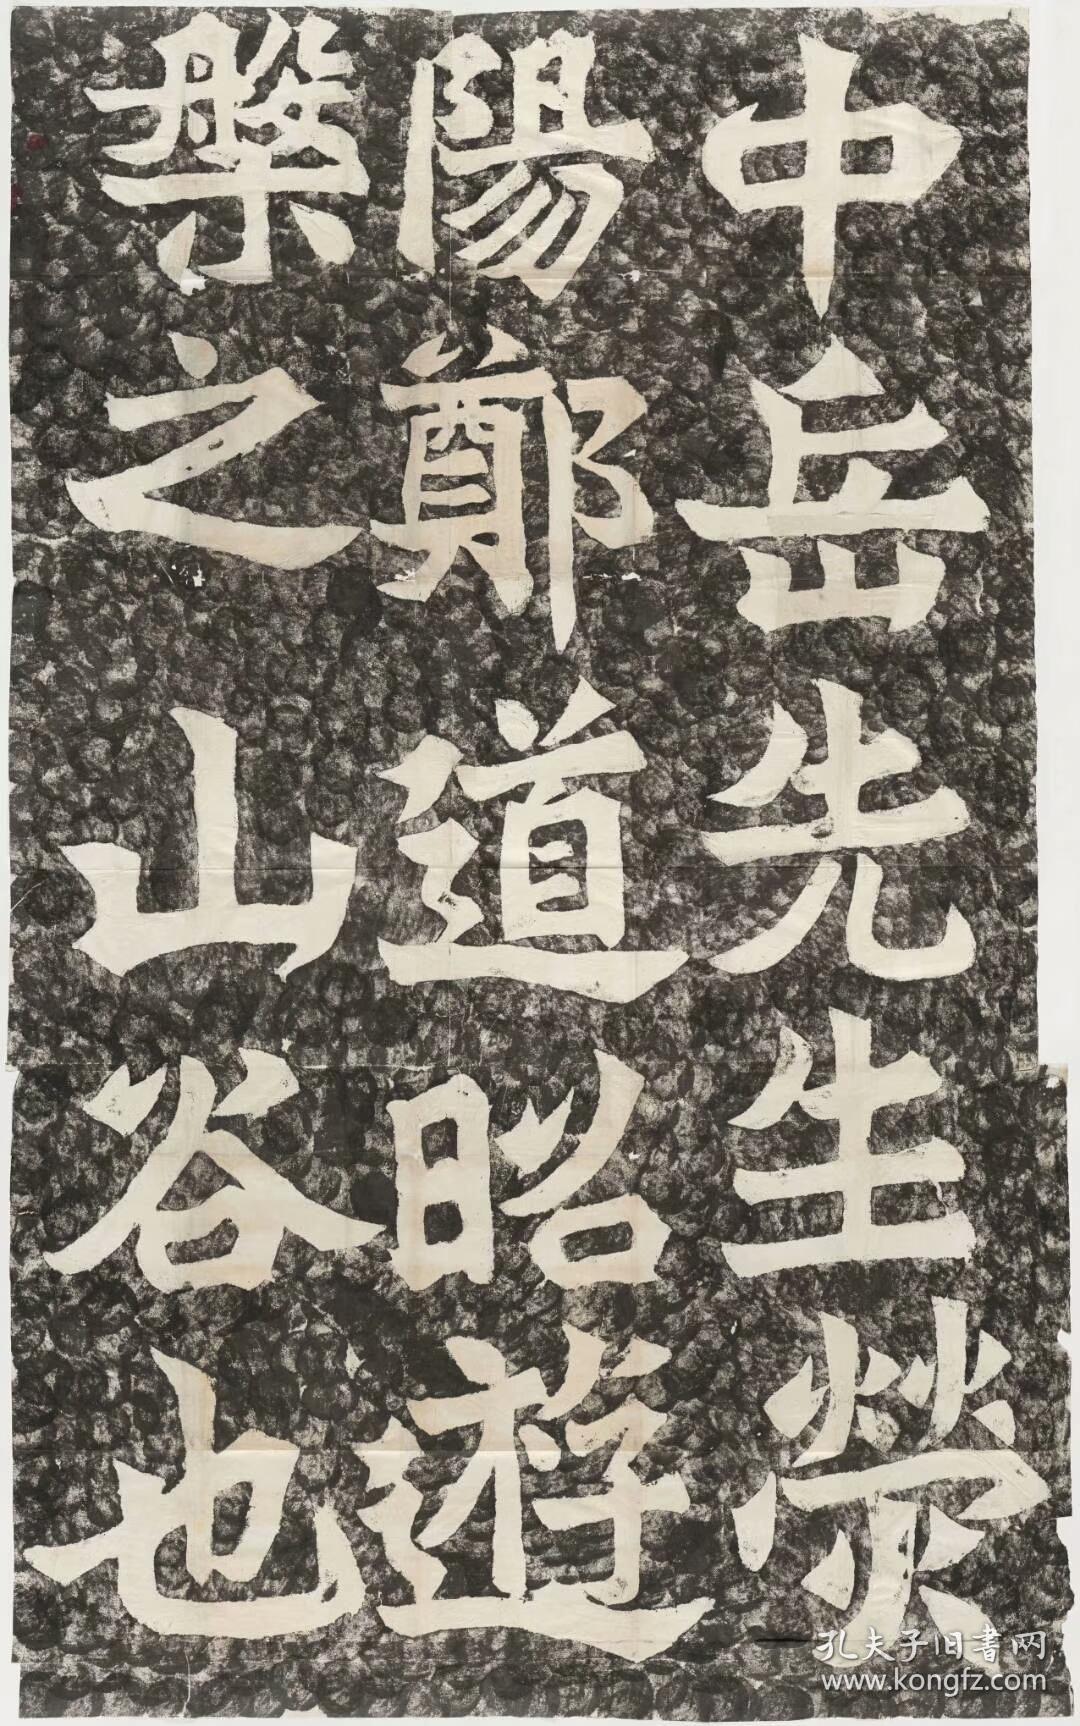 中岳先生荥
陽鄭道昭遊
槃之山谷也
孔夫子旧書网
www.kongfz.com